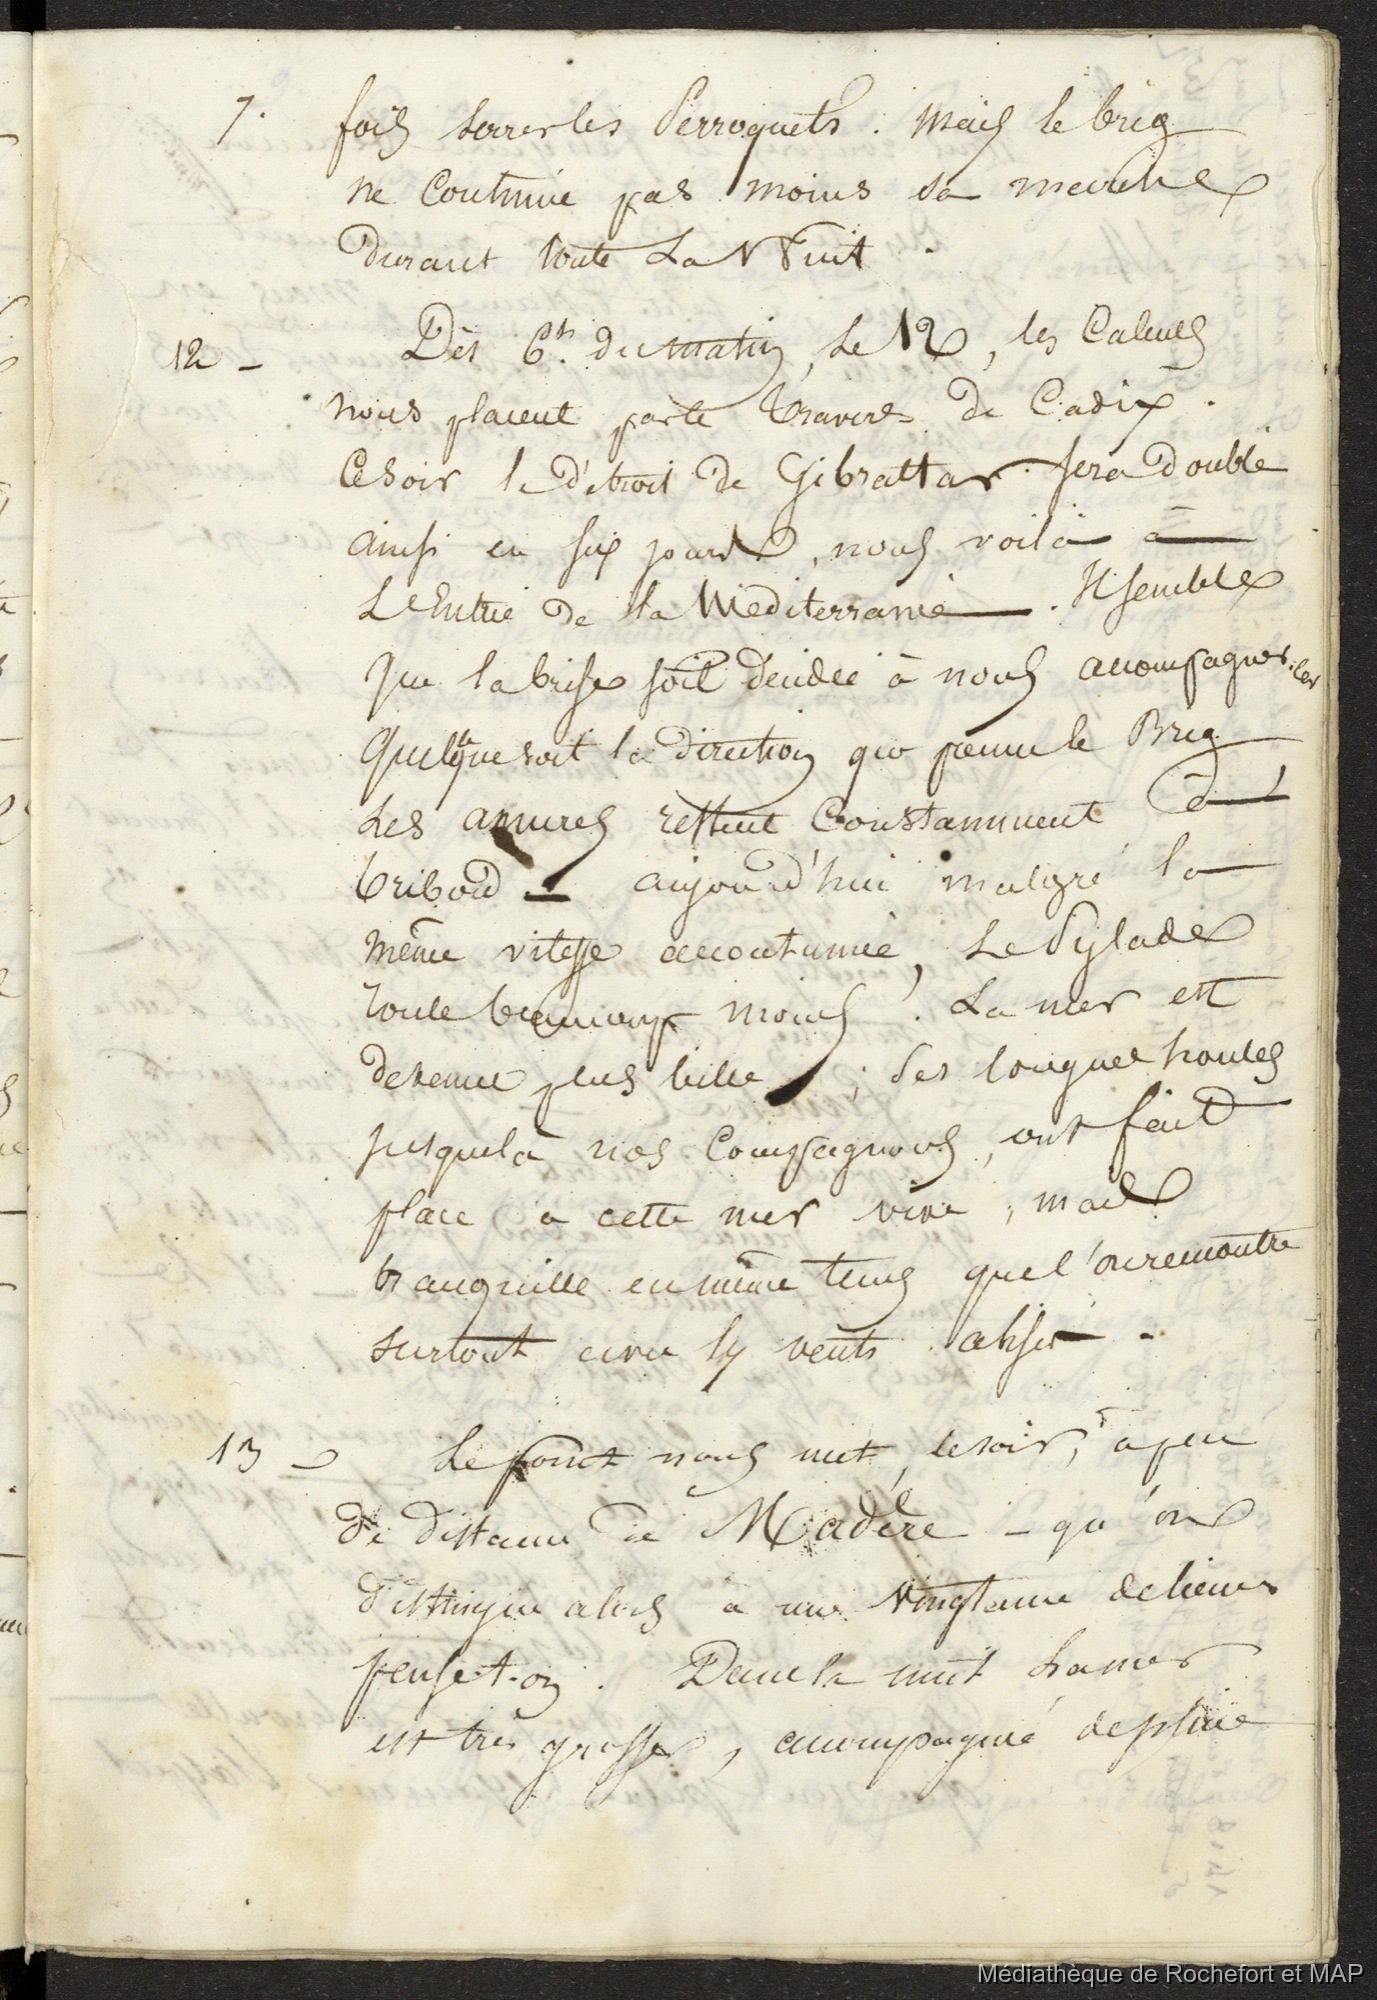 7. fois serrer les Perroquets. Mais le brig
ne Continüe pas moins sa marche
durant toute La Nuit.
12 - Dès 6h. du matin, Le 12, les Calculs
nous placent par le travers de Cadix.
Ce soir le détroit de Gibraltar sera doublé
ainsi en six jours, nous voilà à
L'Entrée de la Méditerranée. Il semble
que la brise soit décidée à nous accompagner. car
Quelque soit la direction que prenne le Brig
Les amures restent Constamment à
tribord - aujourd'hui malgré la
même vitesse accoutumée, Le Pylade
roule beaucoup moins. La mer est
devenue plus belle; les longues houles
jusques là nos Compagnons, ont fait
place à cette mer vive, mais
tranquille en même tems que l'on remontre
surtout avec les vents alisés.
13 - Le point nous met, le soir, à peu
de distance de Madère - qu'on
distingue alors à une vingtaine de lieues
pense-t-on. Dans la nuit La mer
est très grosse, accompagnée de pluie
Médiathèque de Rochefort et MAP